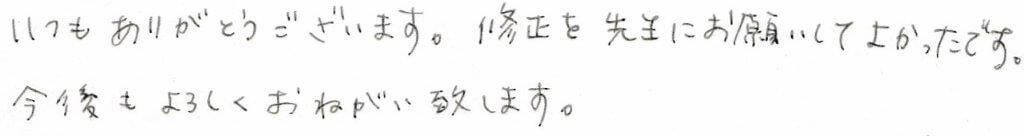 いつもありがとうございます。修正を先生にお願いしてよかったです。
今後もよろしくおねがい致します。